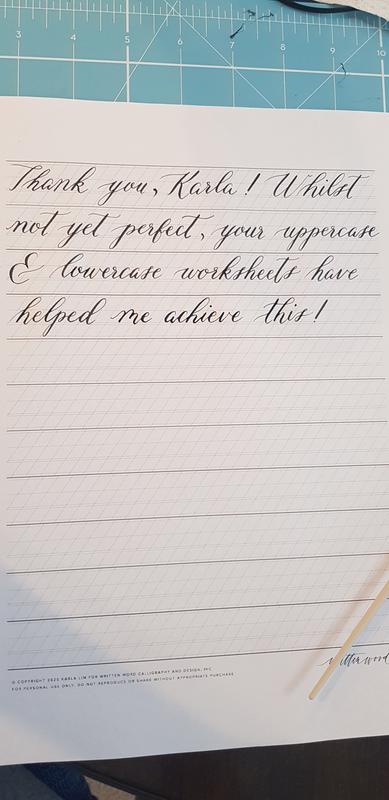 3 4 5 6 7 8 9 10
Thank you, Karla! Whilst
not yet perfect, your uppercase
& lowercase worksheets have
helped me achieve this!
© COPYRIGHT 2020 KARLA LIM FOR WRITTEN WORD CALLIGRAPHY AND DESIGN, INC.
FOR PERSONAL USE ONLY. DO NOT REPRODUCE OR SHARE WITHOUT APPROPRIATE PURCHASE.